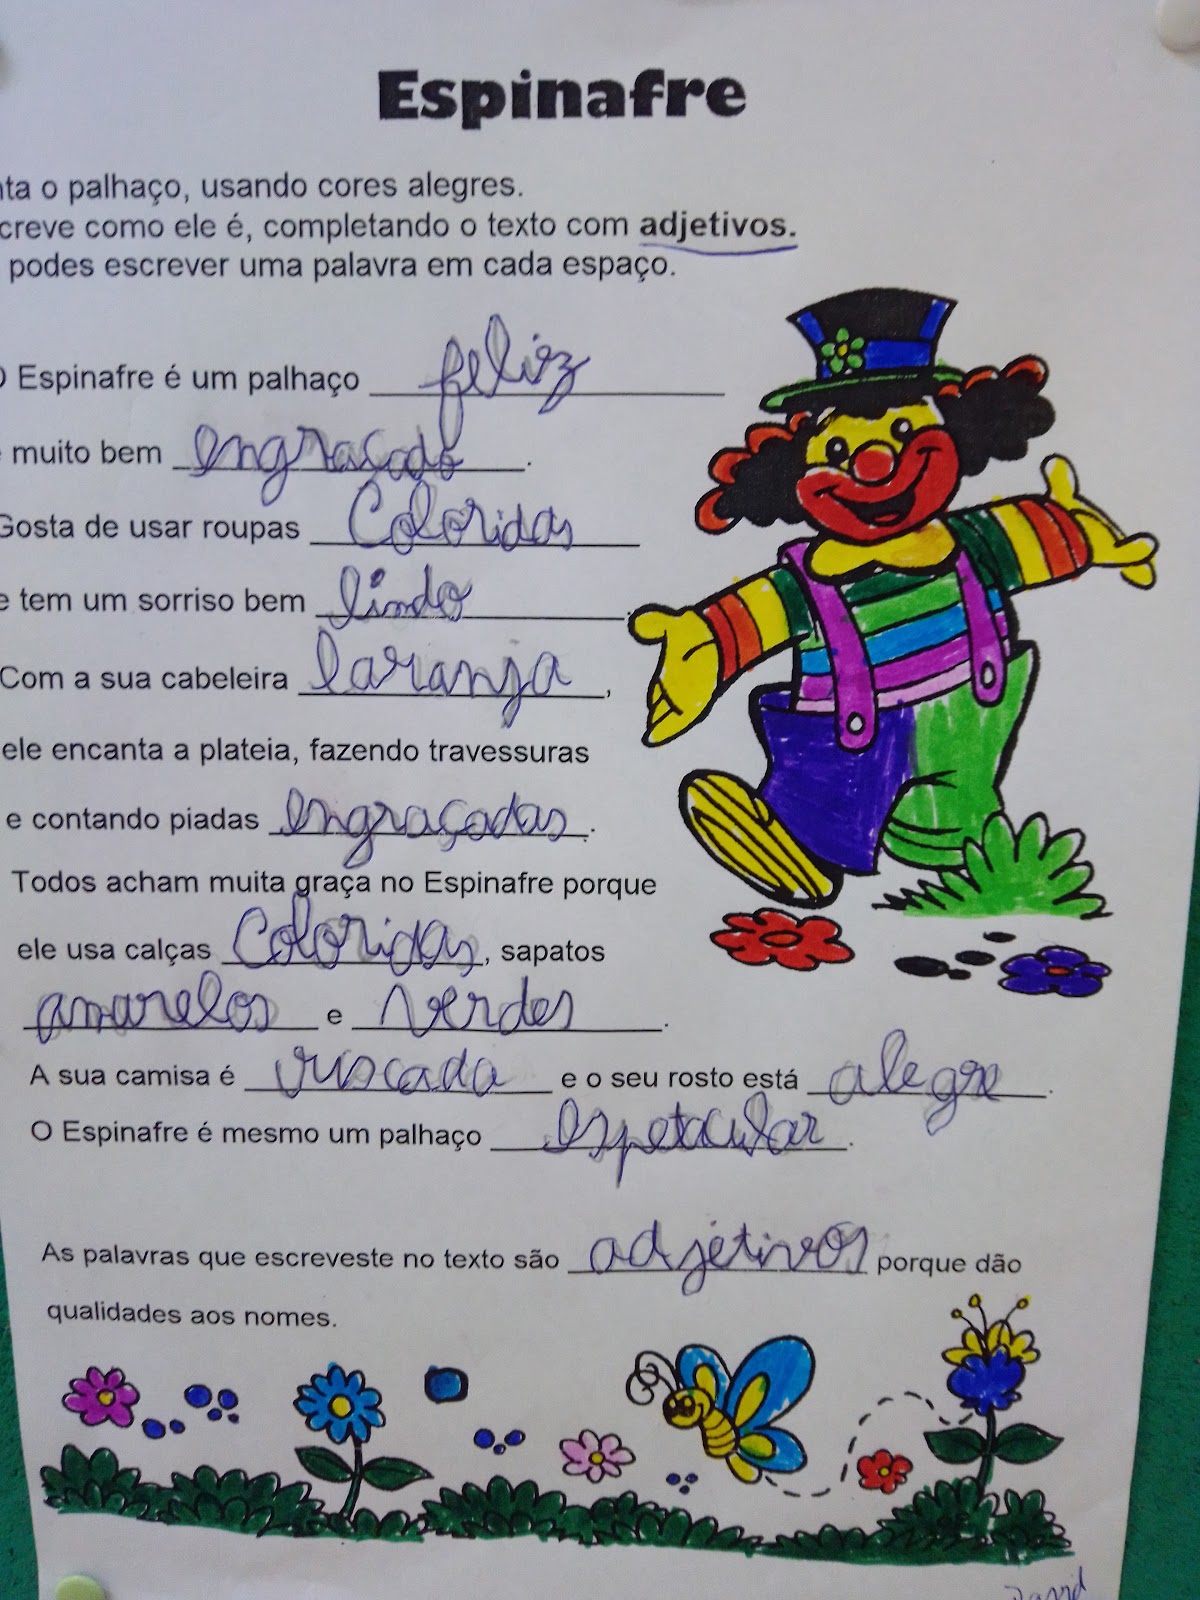 Espinafre
nta o palhaço, usando cores alegres.
creve como ele é, completando o texto com adjetivos.
podes escrever uma palavra em cada espaço.
O Espinafre é um palhaço feliz
e muito bem engraçado.
Gosta de usar roupas Coloridas
e tem um sorriso bem lindo.
Com a sua cabeleira laranja,
ele encanta a plateia, fazendo travessuras
e contando piadas engraçadas.
Todos acham muita graça no Espinafre porque
ele usa calças Coloridas, sapatos
amarelos e verdes.
A sua camisa é riscada e o seu rosto está alegre.
O Espinafre é mesmo um palhaço espetacular.
As palavras que escreveste no texto são adjetivos porque dão
qualidades aos nomes.